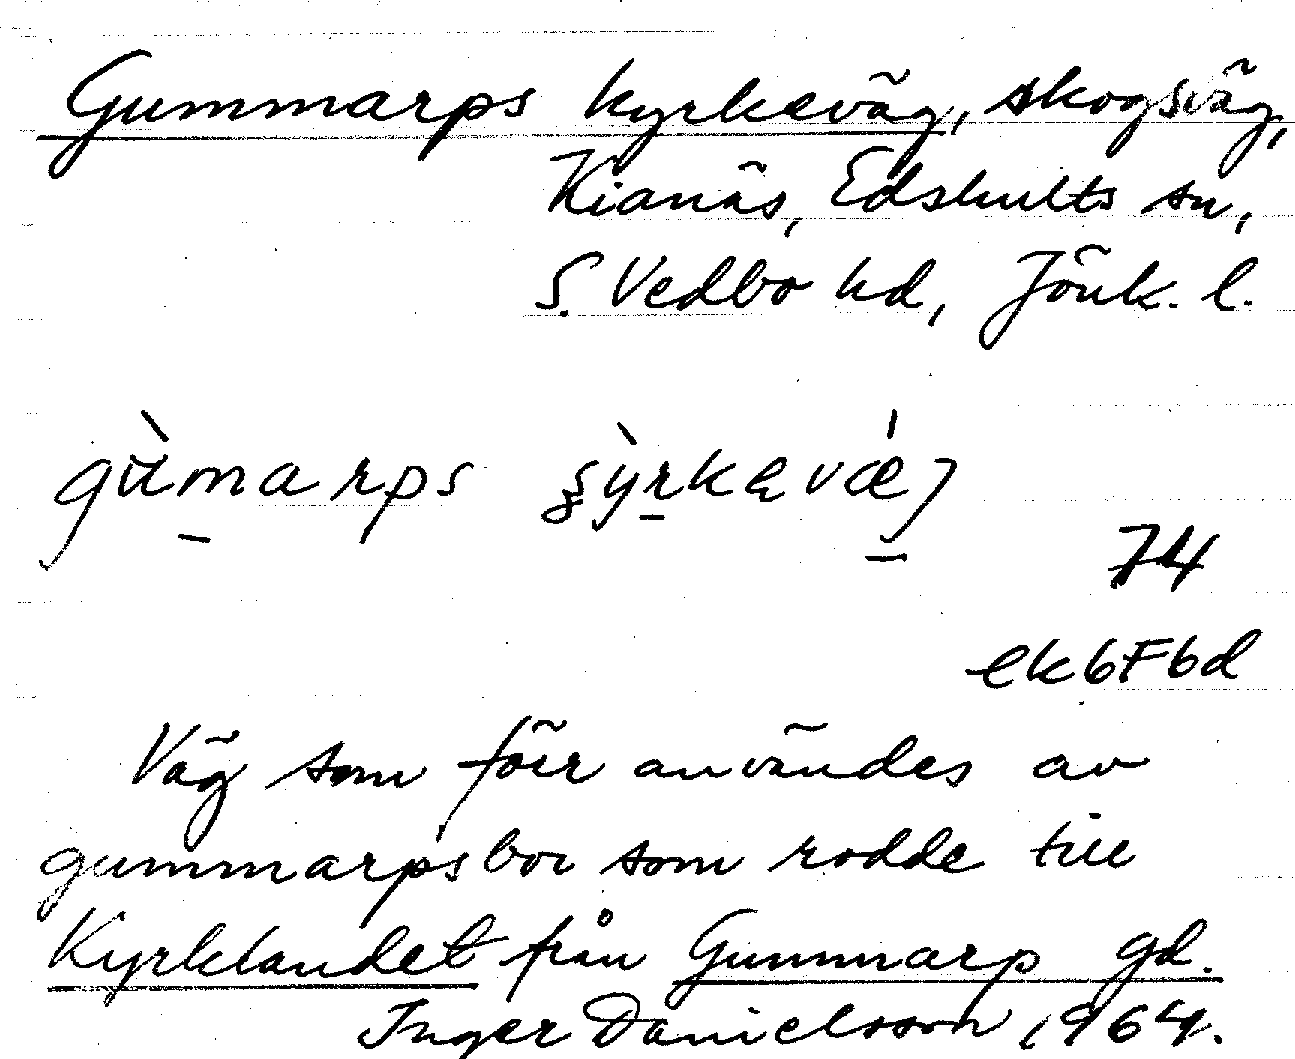 Gummarps kyrkeväg, skogsväg,
Kianäs, Edshults sn,
S. Vedbo hd, Jönk. l.
gu̇̀marps ʂỳrkęvǽȷ
74
ek6F6d
Väg som förr användes av
gummarpsbor som rodde till
Kyrklandet från Gummarp gd.
Inger Danielsson 1964.